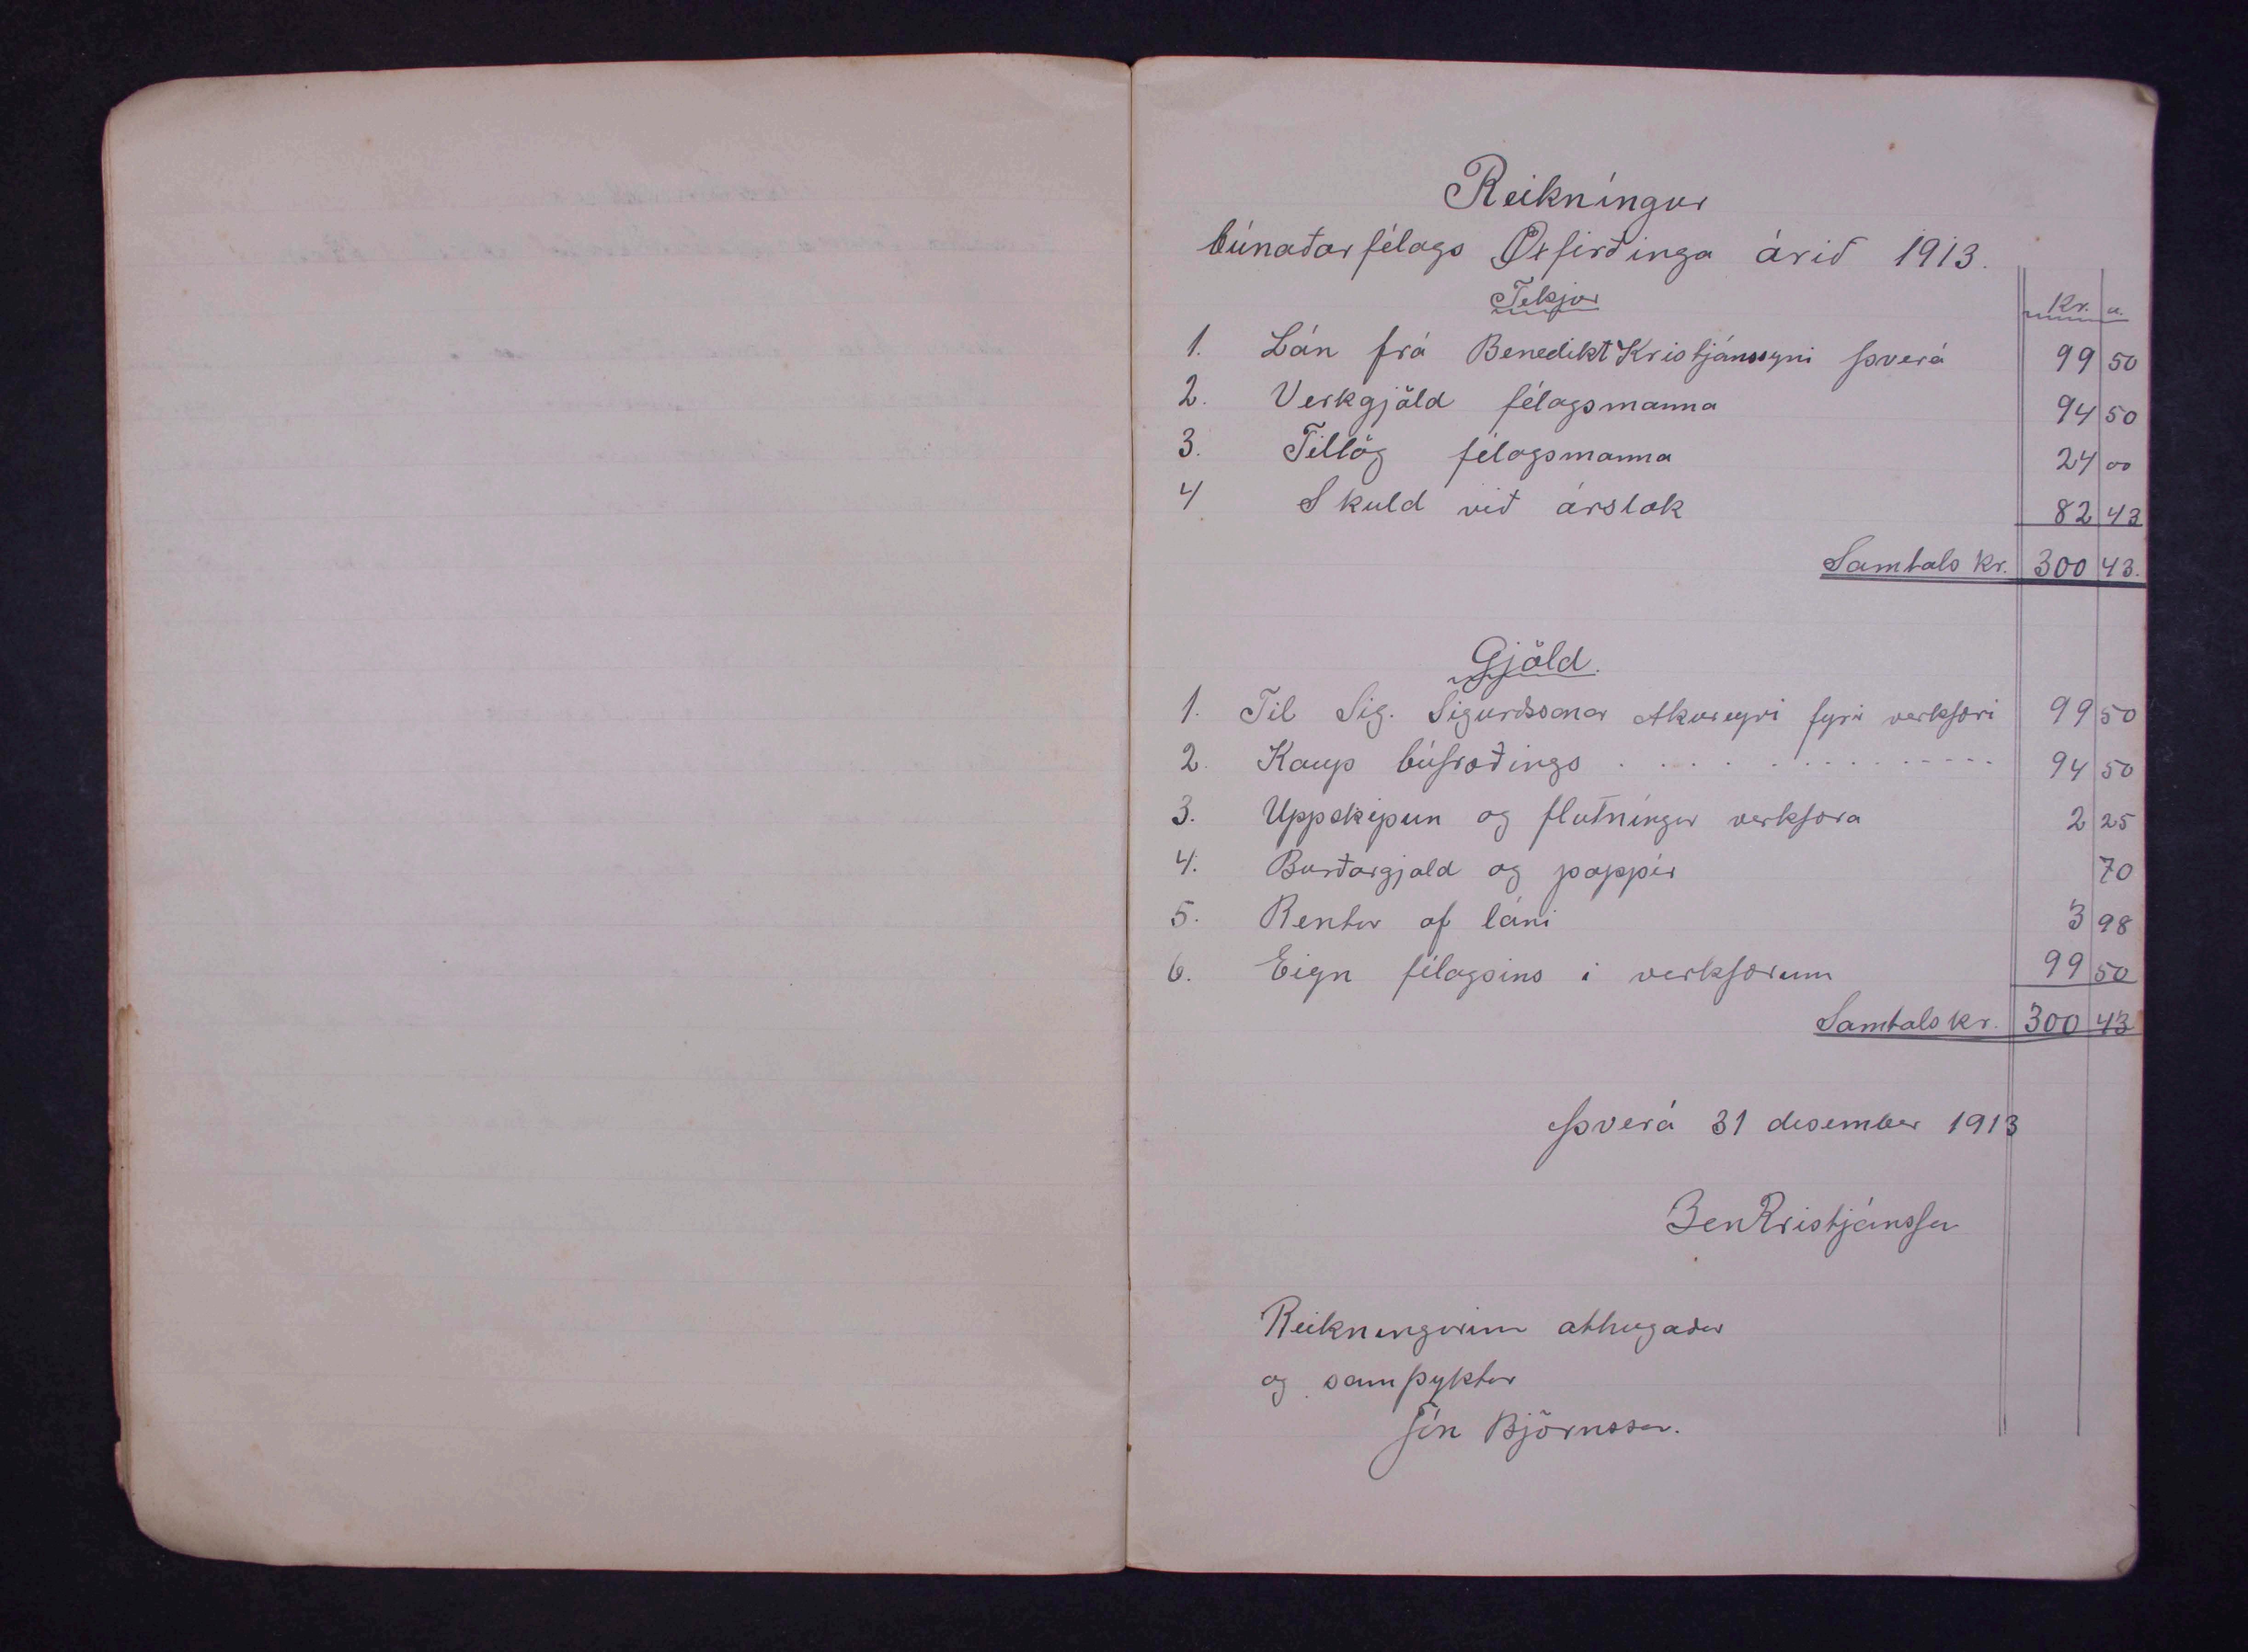 Reikníngur
búnaðarfélags Øxfirðinga árið 1913.
Tekjur
Kr. a.
1. Lán frá Benedikt Kristjánssyni Þverá 99 50
2. Verkgjöld félagsmanna 94 50
3. Tillög félagsmanna 24 00
4 Skuld við árslok 82 43
Samtals kr. 300 43.
Gjöld.
1. Til Sig. Sigurðssonar Akureyri fyrir verkfæri 99 50
2. Kaup búfræðings . . . . . . . . . . . . . . . 94 50
3. Uppskipun og flutníngur verkfæra 2 25
4. Burðargjald og pappír 70
5. Rentur af láni 3 98
6. Eign félagsins i verkfærum 99 50
Samtals kr. 300 43
Þverá 31 desember 1913
Ben Kristjánsson
Reikningurinn athugaður
og samþyktur
Jón Björnsson.